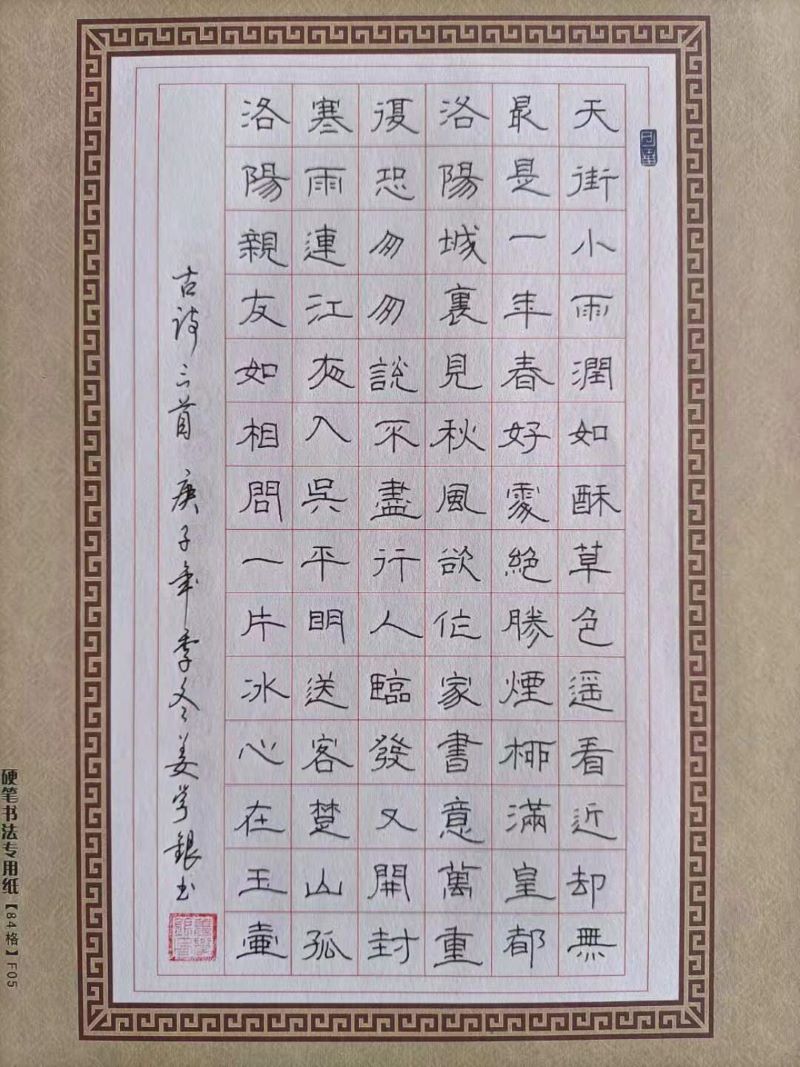 天街小雨潤如酥草色遥看近却無
最是一年春好處絶勝煙柳滿皇都
洛陽城裏見秋風欲作家書意萬重
復恐匆匆説不盡行人臨發又開封
寒雨連江夜入吳平明送客楚山孤
洛陽親友如相問一片冰心在玉壺
古詩三首 庚子年季冬姜学銀书
硬笔书法专用纸【84格】F05